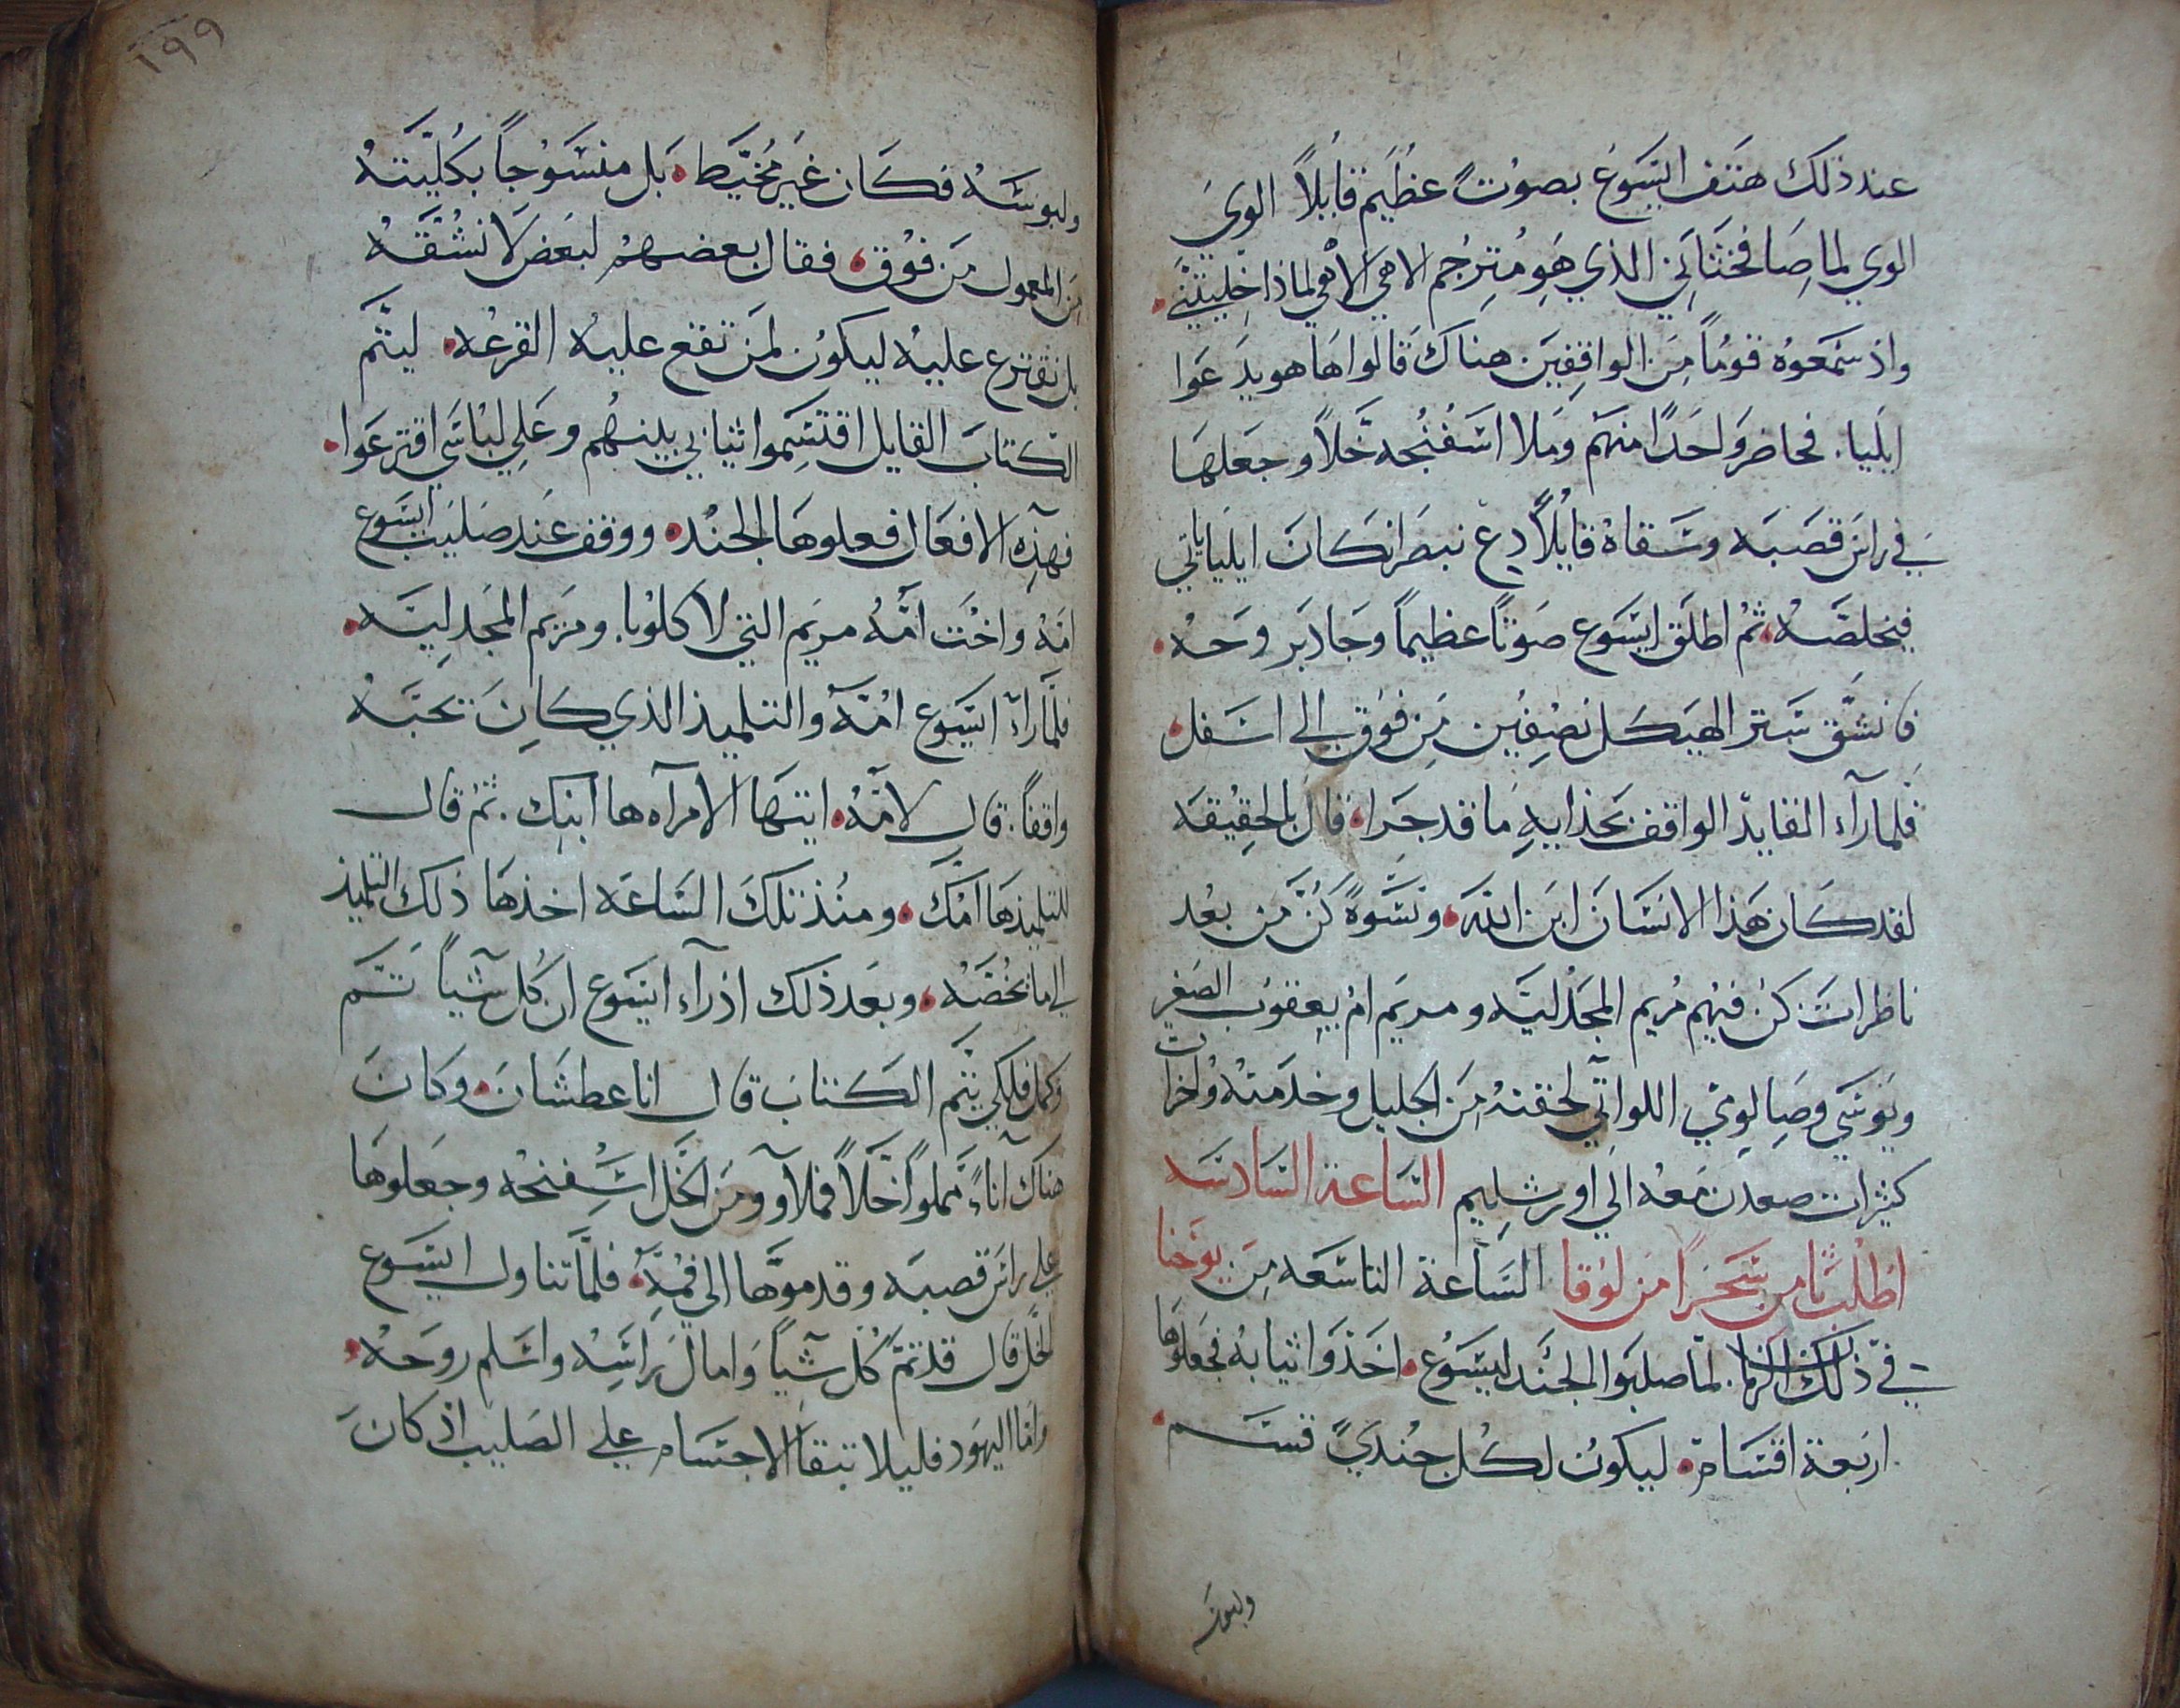 عند ذلك هتف ايسوع بصوت عظيم قايلاً الوي
الوي لما صافختاني الذي هو مترجم الاهي الاهي لماذا خليتني
واذ سمعوه قوماً من الواقفين هناك قالوا ها هو يدعوا
ايليا. فحاضر واحداً منهم وملا اسفنجه خلاً وجعلها
في راس قصبه وسقاه قايلاً دع نبصر انكان ايليا ياتي
فيخلصه ثم اطلق ايسوع صوتاً عظيماً وجاد بروحه
فانشق ستر الهيكل نصفين من فوق الى اسفل
فلما رآء القايد الواقف بحذايه ما قد جرا قال بالحقيقه
لقد كان هذا الانسان ابن الله ونسوةً كن من بعد
ناظرات كن فيهم مريم المجدليه ومريم ام يعقوب الصغير
ويوسي وصالومي اللواتي لحقنه من الجليل وخدمنه واخرات
كثيرات صعدن معه الى اورشليم الساعة السادسه
اطلب ثامن سحراً من لوقا الساعة التاسعه من يوحنا
في ذلك الزمان لما صلبوا الجند ايسوع اخذوا ثيابه فجعلوها
اربعة اقسام ليكون لكل جندي قسم
ولبوسه
١٩٩
ولبوسه فكان غير مخيط بل منسوجاً بكليته
من المعمول من فوق فقال بعضهم لبعض لا نشقه
بل نقترع عليه ليكون لمن تقع عليه القرعه ليتم
الكتاب القايل اقتسموا ثيابي بينهم وعلى لباسي اقترعوا
فهذه الافعال فعلوها الجند ووقف عند صليب ايسوع
امه واخت امه مريم التي لاكلوبا. ومريم المجدليه
فلما رآء ايسوع امه والتلميذ الذي كان يحبه
واقفاً. قال لامه ايتها الامرآه ها ابنك. ثم قال
للتلميذ ها امك ومنذ تلك الساعه اخذها ذلك التلميذ
الى ما يخصه وبعد ذلك اذ رآء ايسوع ان كل شياً تم
وكمل فلكي يتم الكتاب قال انا عطشان وكان
هناك آناءً مملواً خلاً فملاوو من الخل اسفنجه وجعلوها
على راس قصبه وقدموها الى فمه فلما تناول ايسوع
الخل قال قد تم كل شياً وامال براسه واسلم روحه
واما اليهود فليلا تبقا الاجسام على الصليب اذ كان